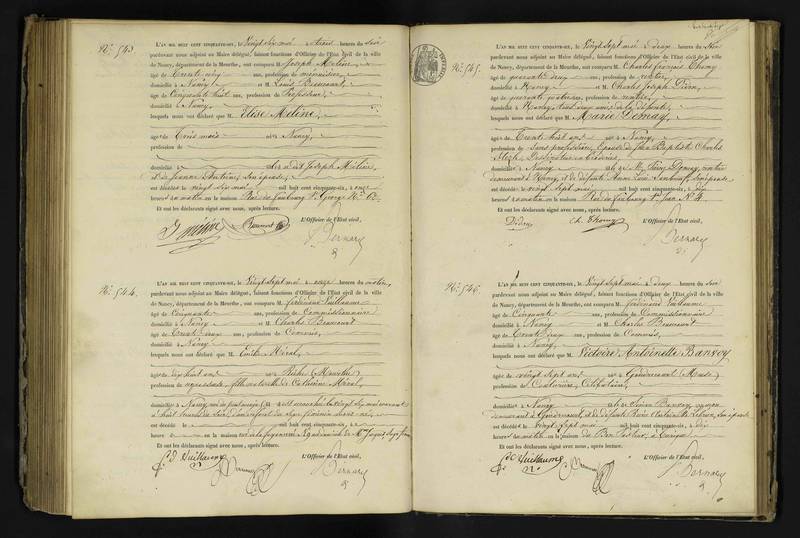 N.° 543.
L'AN MIL HUIT CENT CINQUANTE-SIX, le Vingt six mai à trois heures du soir
pardevant nous adjoint au Maire délégué, faisant fonctions d'Officier de l'État civil de la ville
de Nancy, département de la Meurthe, ont comparu M. Joseph Méline,
âgé de Trente cinq ans, profession de menuisier,
domicilié à Nancy et M. Louis
âgé de Cinquante huit ans, profession de Professeur,
domicilié à Nancy,
lesquels nous ont déclaré que M. Elise Méline,
âgé de Trois mois né à Nancy,
profession de
domicilié à fille du dit Joseph Méline,
et de Jeanne Antoine, son épouse,
est décédée le vingt six mai mil huit cent cinquante-six, à onze
heures du matin en la maison Rue du faubourg St George N.°
Et ont les déclarants signé avec nous, après lecture.
L'Officier de l'État civil,
J Méline
Bernard
N.° 544.
L'AN MIL HUIT CENT CINQUANTE-SIX, le Vingt sept mai à onze heures du matin,
pardevant nous adjoint au Maire délégué, faisant fonctions d'Officier de l'État civil de la ville
de Nancy, département de la Meurthe, ont comparu M. ferdinand Vuillaume
âgé de Cinquante ans, profession de Commissionnaire
domicilié à Nancy et M. Charles
âgé de Trente deux ans, profession de Commis,
domicilié à Nancy,
lesquels nous ont déclaré que M. Emélie Méral,
âgée de dix huit ans née à (Meurthe)
profession de fille naturelle de Catherine Méral,
domiciliée à Nancy, est accouchée le vingt six mai courant
à huit heures du soir, d'un enfant du sexe féminin mort né,
est décédé le mil huit cent cinquante-six,
heures du en la maison
Et ont les déclarants signé avec nous, après lecture.
L'Officier de l'État civil,
fd Vuillaume
Bernard
N.° 545.
L'AN MIL HUIT CENT CINQUANTE-SIX, le Vingt sept mai à deux heures du soir
pardevant nous adjoint au Maire délégué, faisant fonctions d'Officier de l'État civil de la ville
de Nancy, département de la Meurthe, ont comparu M. Charles françois Thomy
âgé de quarante deux ans, profession de rentier,
domicilié à Nancy et M. Charles Joseph
âgé de quarante quatre ans, profession de rentier,
domicilié à Nancy, tous deux amis de la défunte,
lesquels nous ont déclaré que M. Marie Demay,
âgée de Trente huit ans née à Nancy,
profession de Sans profession, Epouse de Jean Baptiste Charles
Dessinateur en broderies,
domiciliée à Nancy fille de M. Demay, rentier
demeurant à Nancy, et de défunte Anne son épouse
est décédée le vingt sept mai mil huit cent cinquante-six, à dix
heures du matin en la maison Rue du faubourg St Jean N.° 4.
Et ont les déclarants signé avec nous, après lecture.
L'Officier de l'État civil,
Ch. Thomy
Bernard
N.° 546.
L'AN MIL HUIT CENT CINQUANTE-SIX, le Vingt sept mai à deux heures du soir
pardevant nous adjoint au Maire délégué, faisant fonctions d'Officier de l'État civil de la ville
de Nancy, département de la Meurthe, ont comparu M. ferdinand Vuillaume
âgé de Cinquante ans, profession de Commissionnaire
domicilié à Nancy et M. Charles
âgé de Trente deux ans, profession de Commis,
domicilié à Nancy,
lesquels nous ont déclaré que M. Victoire Antoinette Banvoy
âgée de vingt sept ans née à Gondrecourt (Meuse)
profession de Couturière, Célibataire,
domiciliée à Nancy fille de Banvoy,
demeurant à Gondrecourt, et de défunte son épouse
est décédée le vingt sept mai mil huit cent cinquante-six, à dix
heures du matin en la maison du Bon Pasteur,
Et ont les déclarants signé avec nous, après lecture.
L'Officier de l'État civil,
fd Vuillaume
Bernard